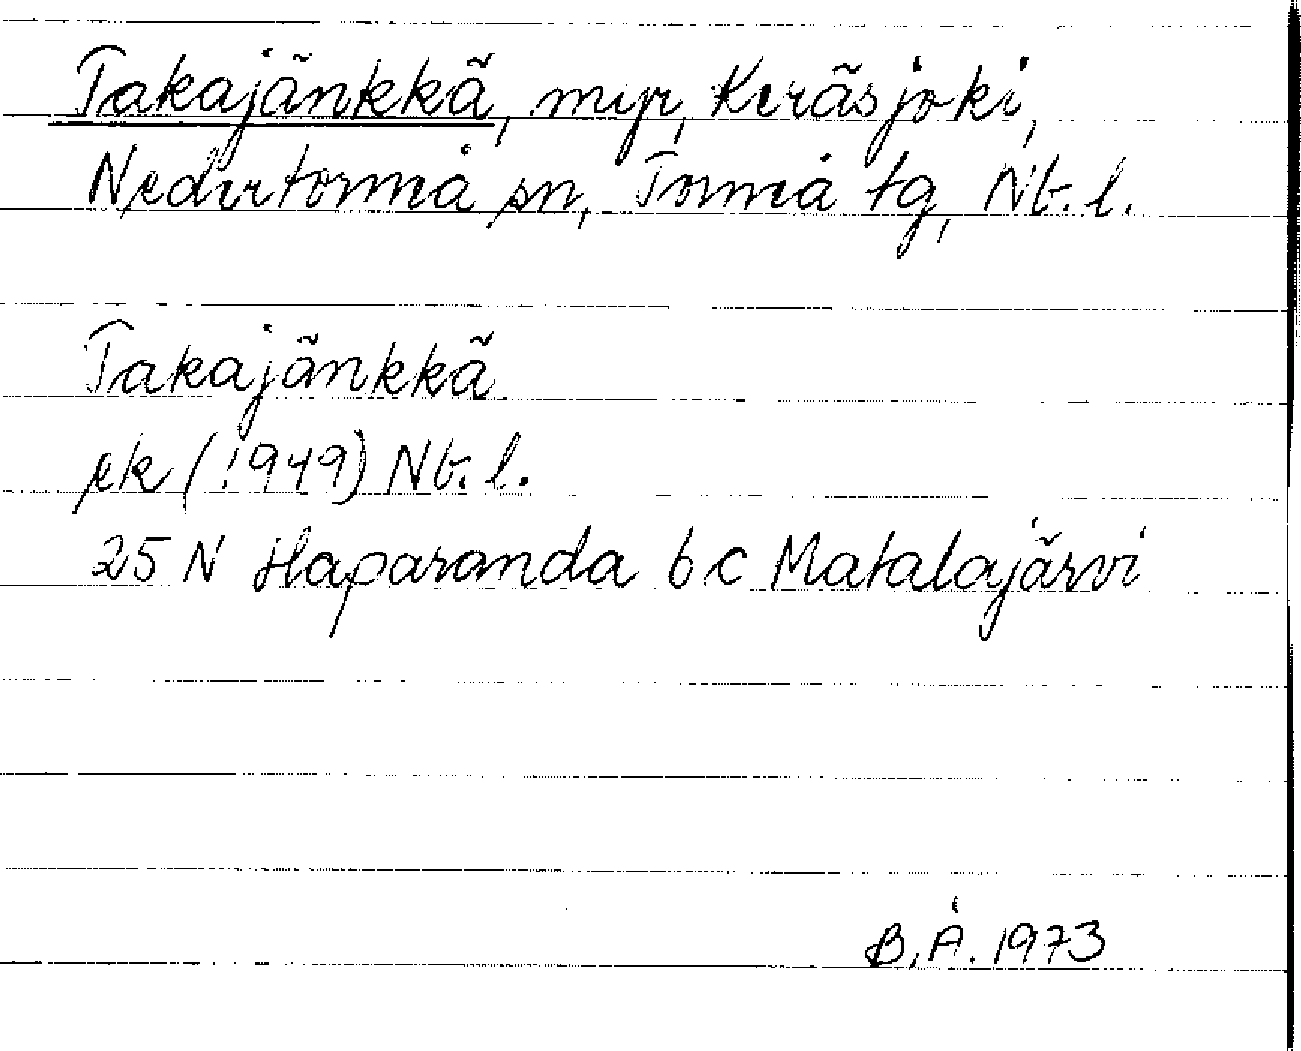 Takajänkkä, myr, Keräsjoki,
Nedertorneå sn, Torneå tg, Nb. l.
Takajänkkä
ek (1949) Nb. l.
25 N Haparanda 6 c Matalajärvi
B.Å. 1973